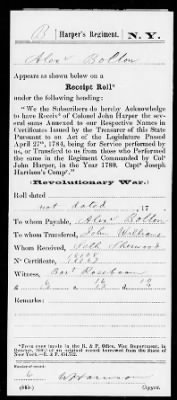 B | Harper's Regiment. | N. Y.
Alex Bolton
Appears as shown below on a
Receipt Roll*
under the following heading:
"We the Subscribers do hereby Acknowledge
to have Receivd of Colonel John Harper the sev-
eral sums Annexed to our Respective Names in
Certificates Issued by the Treasurer of this State
Pursuant to an Act of the Legislature Passed
April 27th, 1784, being for Service performed by
us, or Transferd to us from those who Performed
the same in the Regiment Commanded by Col
John Harper, in the Year 1780. Capt Joseph
Harrison's Comp."
(Revolutionary War.)
Roll dated
not dated, 17
To whom Payable, Alex Bolton
To whom Transferred, John Williams
Whom Received, Seth Sherwood
No Certificate,
Witness, Bar Roseboom
Remarks:
*Copy made tracts in the R. & P. Office, War Department, in
from an original record borrowed from the State of
New York.—R. & P.
Number of record:
6
W Harrison
Copyist.